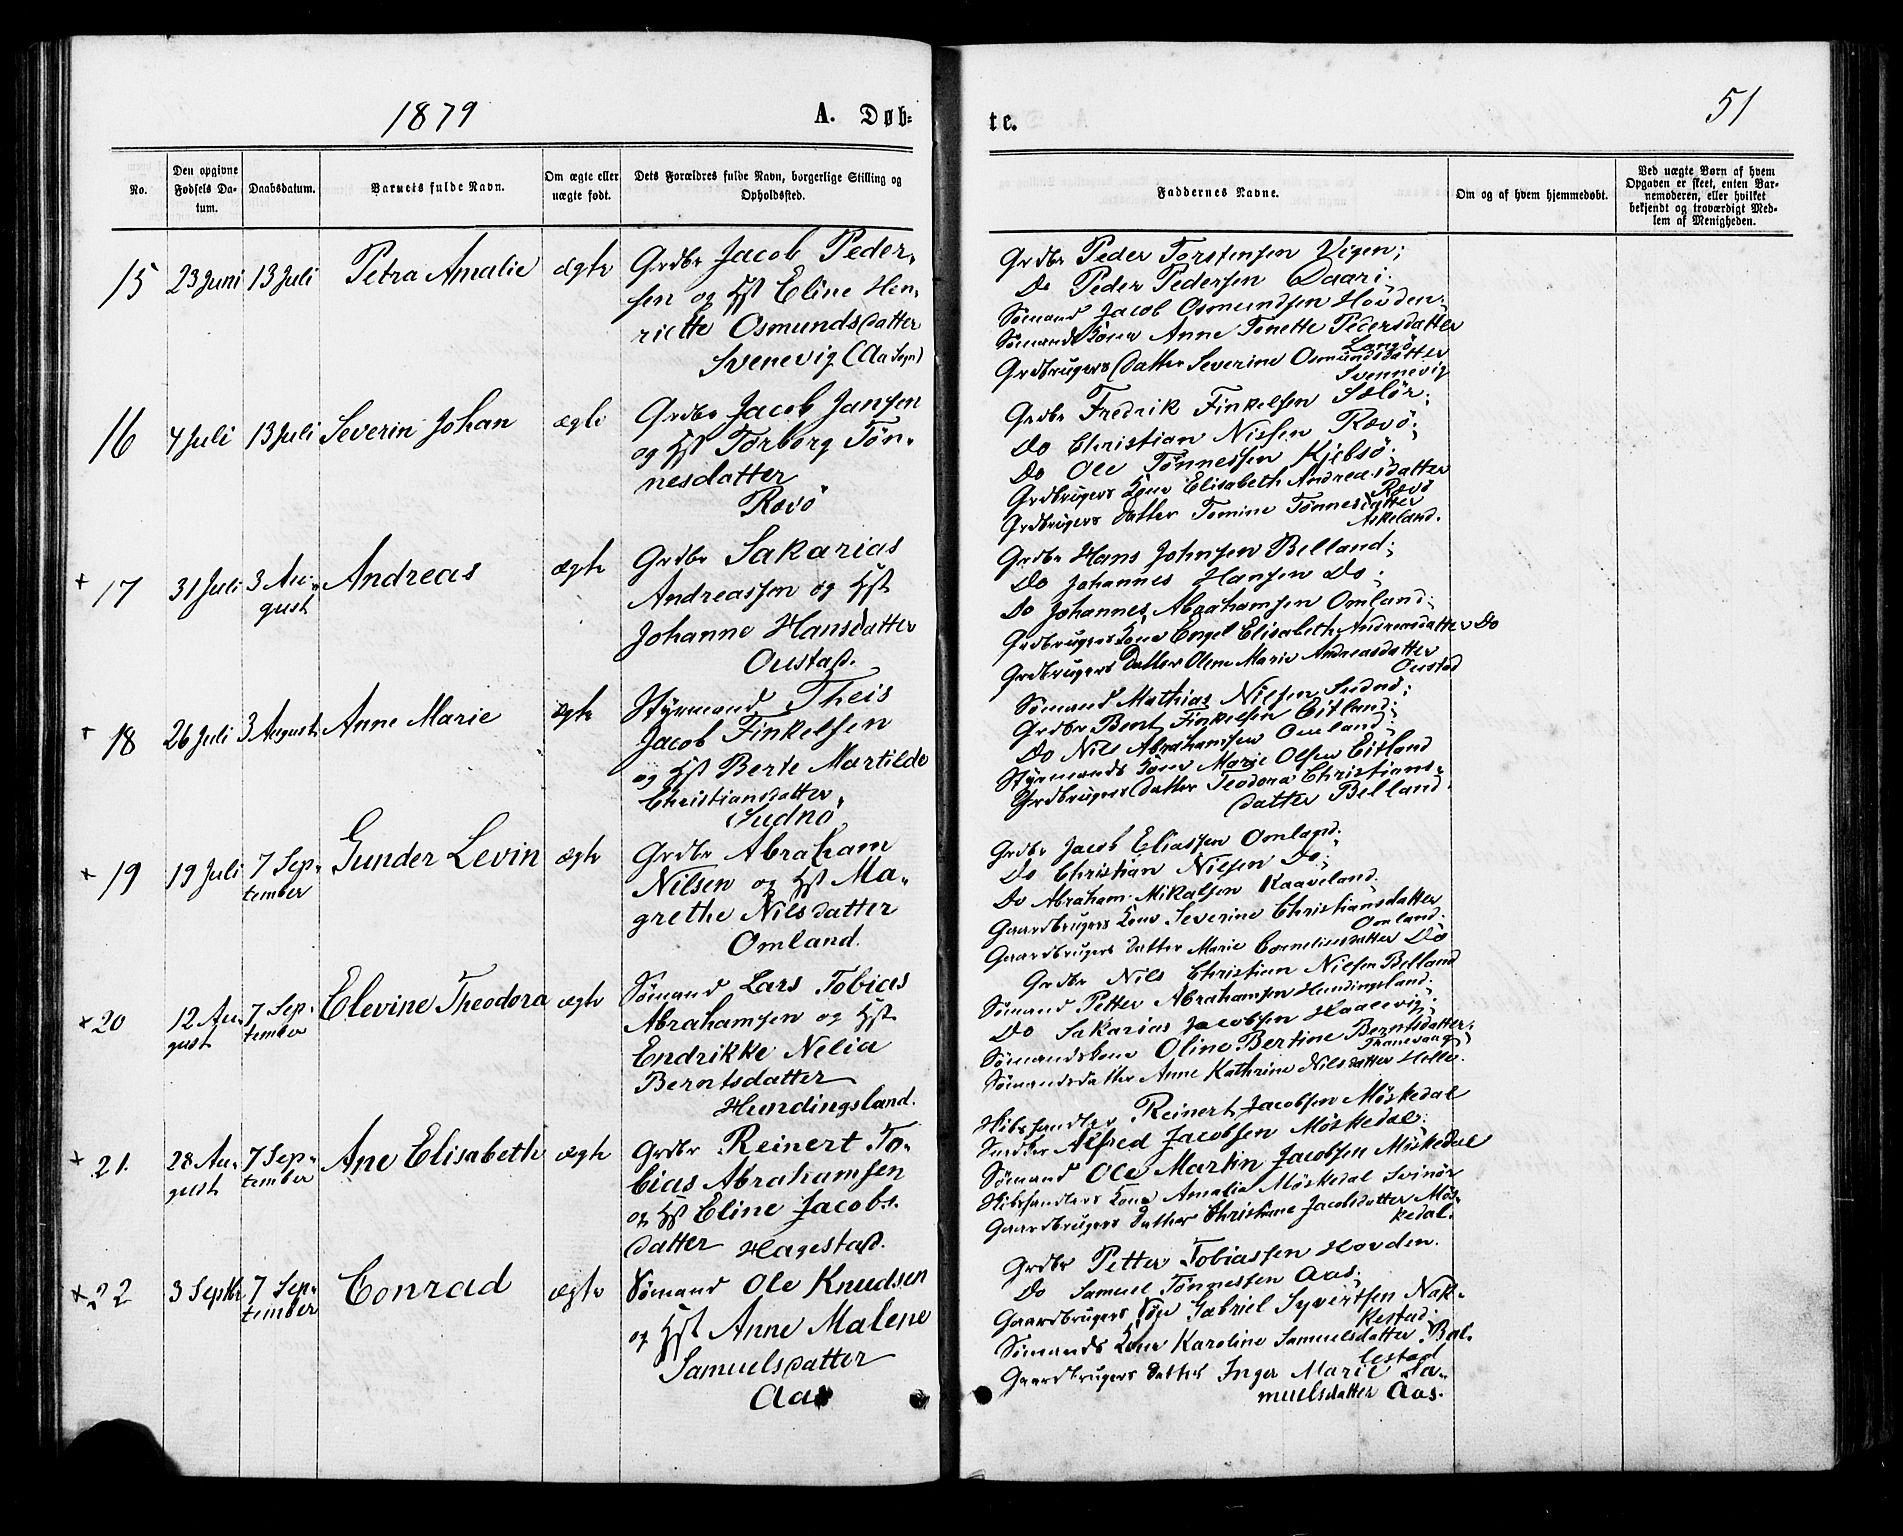 1879
A. Døb-
te.
51
No.
Den opgivne Fødsels Da-tum.
Daabsdatum.
Barnets fulde Navn.
Om ægte eller uægte født.
Dets Forældres fulde Navn, borgerlige Stilling og Opholdssted.
Faddernes Navne.
Om og af hvem hjemmedøbt.
Ved uægte Børn af hvem Opgaven er skeet, enten Bar-nemoderen, eller hvilket bekjendt og troværdigt Med-lem af Menigheden.
15 23 Juni 13 Juli Petra Amalie ægte
Grdbr Jacob Peder-
sen og Hst Eline Hen-
riette Osmundsdatter
Svenevig (Aa Sogn)
Grdbr Peder Torstensen Vigen;
Do Peder Pedersen Daari;
Sømand Jacob Osmundsen Hovden;
Sømands Kone Anne Tonette Pedersdatter
Grdbrugers Datter Severine Osmundsdatter
Svennevig
16 4 Juli 13 Juli Severin Johan ægte
Grdbr Jacob Jansen
og Hst Torborg Tøn-
nesdatter
Rævø
Grdbr Fredrik Finkelsen Sælør;
Do Christian Nissen Rævø;
Do Ole Tønnessen Kjebsø;
Grdbrugers Kone Elisabeth Andreasdatter
Rævø
Grdbrugers Datter Tomine Tønnesdatter
Askeland.
+ 17 31 Juli 3 Au-
gust
Andreas ægte
Grdbr Sakarias
Andreassen og Hst
Johanne Hansdatter
Oustad.
Grdbr Hans Johnsen Belland;
Do Johannes Hansen Do;
Do Johannes Abrahamsen Omland;
Grdbrugers Kone Engel Elisabeth Andreasdatter Do
Grdbrugers Datter Olene Marie Andreasdatter
Oustad
+ 18 26 Juli 3 August Anne Marie ægte
Styrmand Theis
Jacob Finkelsen
og Hst Berte Martilde
Christiansdatter
Sudnø
Sømand Mathias Nilsen Sudnø;
Grdbr Bent Finkelsen Eitland;
Do Nils Abrahamsen Omland;
Styrmands Kone Marie Olsen Eitland
Grdbrugers Datter Teodora Christians-
datter Belland.
+ 19 19 Juli 7 Sep-
tember
Gunder Levin ægte
Grdbr Abraham
Nilsen og Hst Ma-
grethe Nilsdatter
Omland.
Grdbr Jacob Eliassen Omland;
Do Christian Nilsen Do;
Do Abraham Mikalsen Kaaveland;
Gaardbrugers Kone Severine Christiansdatter
Omland;
Gaardbrugers Datter Marie Corneliusdatter Do
+ 20 12 Au-
gust
7 Sep-
tember
Elevine Theodora ægte
Sømand Lars Tobias
Abrahamsen og Hst
Endrikke Nelia
Berntsdatter
Hundingsland.
Grdbr Nils Christian Nilsen Belland
Sømand Petter Abrahamsen Hundingsland;
Do Sakarias Jacobsen Haaevig;
Sømandskone Oline Bertine Berntsdatter
Sømandsdatter Anne Kathrine Nilsdatter Helle.
+ 21. 28 Au-
gust
7 Sep-
tember
Ane Elisabeth ægte
Grdbr Reinert To-
bias Abrahamsen
og Hst Eline Jacobs-
datter Hagestad.
Reinert Jacobsen Møskedal
Alfred Jacobsen Møskedal;
Sømand Ole Martin Jacobsen Møskedal
Kone Amalia Møskedal Svinør
Gaardbrugers Datter Christiane Jacobsdatter Møs-
kedal.
+ 22 3 Septbr 7 Sep-
tember
Conrad ægte
Sømand Ole Knudsen
og Hst Anne Malene
Samuelsdatter
Aas
Grdbr Petter Tobiassen Hovden.
Do Samuel Tønnessen Aas;
Gaardbrugers Søn Gabriel Syvertsen Nak-
kestad;
Sømands Kone Karoline Samuelsdatter Bal-
lestad
Gaardbrugers Datter Inger Marie Sa-
muelsdatter Aas.